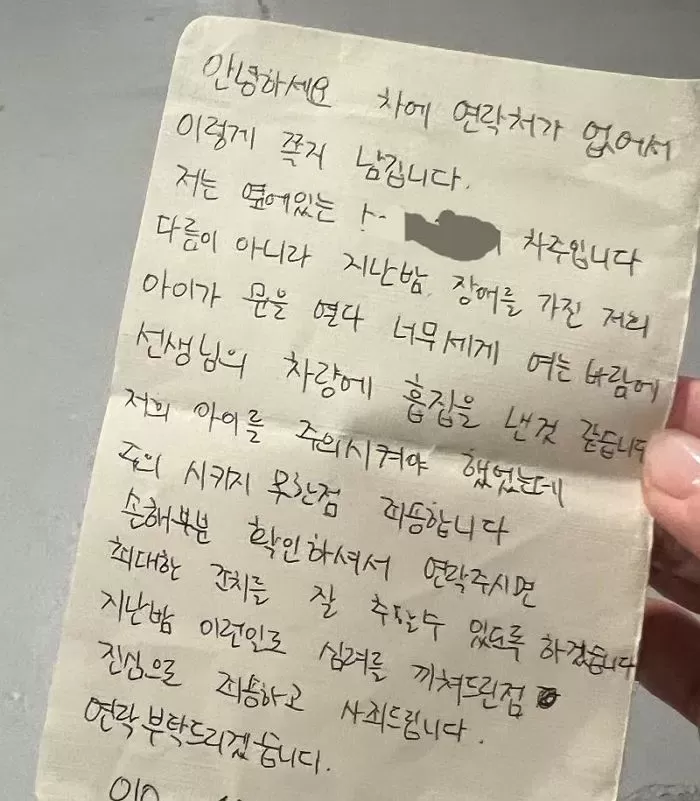 안녕하세요 차에 연락처가 없어서
이렇게 쪽지 남깁니다.
저는 옆에있는 차주입니다
다름이 아니라 지난밤, 장애를 가진 저희
아이가 문을 열다 너무세게 여는 바람에
선생님의 차량에 흡집을 낸것 같습니다
저희 아이를 주의시켜야 했었는데
주의 시키지 못한점 죄송합니다
손해부분 확인하셔서 연락주시면
최대한 조치를 잘 추할수 있도록 하겠습니다
지난밤 이런일로 심려를 끼쳐드린점
진심으로 죄송하고 사죄드립니다.
연락부탁드리겠습니다.
010